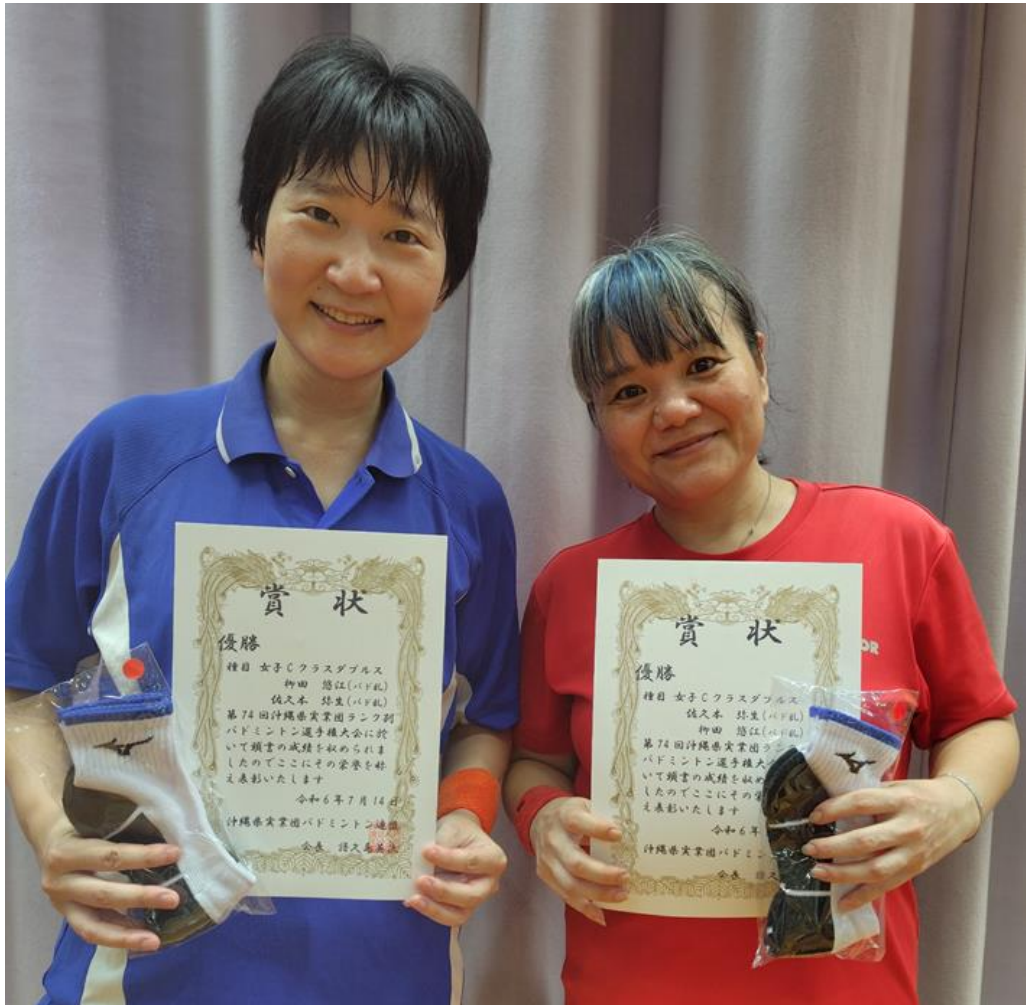 賞 状
優勝
種目 女子Cクラスダブルス
柳田 悠江(バド乱)
佐久本 弥生(バド乱)
第74回沖縄県実業団ランク別
バドミントン選手権大会に於
いて頭書の成績を収められま
したのでここにその栄誉を称
え表彰いたします
令和6年7月14日
沖縄県実業団バドミントン連盟
会長
賞 状
優勝
種目 女子Cクラスダブルス
佐久本 弥生(バド乱)
柳田 悠江(バド乱)
第74回沖縄県実業団ラン
バドミントン選手権大
いて頭書の成績を収め
したのでここにその栄
え表彰いたします
令和6年
沖縄県実業団バドミン
会長